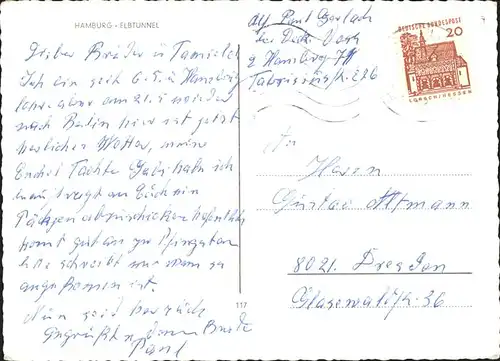 HAMBURG - ELBTUNNEL
Lieber Bruder u Familie
Ich bin seit 6.5. in Hamburg
aber am 21. wieder
nach Berlin hier ist jetzt
herrlicher Wetter, meine
Tochter Gabi habe ich
beauftragt an Euch ein
Päckchen abzuschicken hoffentlich
kommt gut an zu Pfingsten
bitte schreibt mir wenn es
angekommen ist.
Nun seid herzlich
gegrüßt von Deinem Bruder
Paul
117
Abs Paul Gerlach
bei
2 Hamburg
DEUTSCHE BUNDESPOST
20
LORSCH/HESSEN
An
Herrn
Gustav Altmann
8021. Dresden
Glasewaldtstr. 36